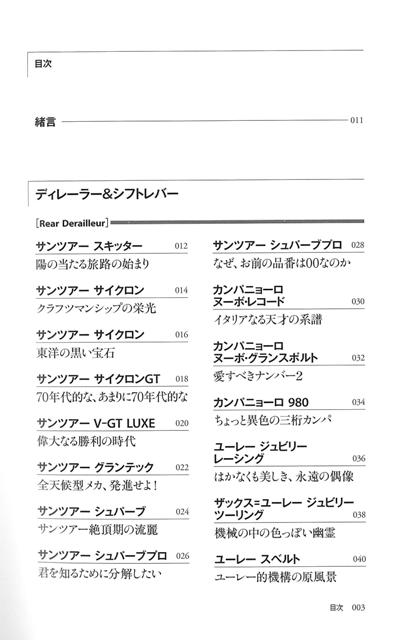 目次
緒言 011
ディレーラー&シフトレバー
[Rear Derailleur]
サンツアー スキッター 012
陽の当たる旅路の始まり
サンツアー サイクロン 014
クラフツマンシップの栄光
サンツアー サイクロン 016
東洋の黒い宝石
サンツアー サイクロンGT 018
70年代的な、あまりに70年代的な
サンツアー V-GT LUXE 020
偉大なる勝利の時代
サンツアー グランテック 022
全天候型メカ、発進せよ!
サンツアー シュパーブ 024
サンツアー絶頂期の流麗
サンツアー シュパーブプロ 026
君を知るために分解したい
サンツアー シュパーブプロ 028
なぜ、お前の品番は00なのか
カンパニョーロ
ヌーボ・レコード 030
イタリアなる天才の系譜
カンパニョーロ
ヌーボ・グランスポルト 032
愛すべきナンバー2
カンパニョーロ 980 034
ちょっと異色の三桁カンパ
ユーレー ジュビリー
レーシング 036
はかなくも美しき、永遠の偶像
ザックス=ユーレー ジュビリー
ツーリング 038
機械の中の色っぽい幽霊
ユーレー スベルト 040
ユーレー的機構の原風景
目次 003